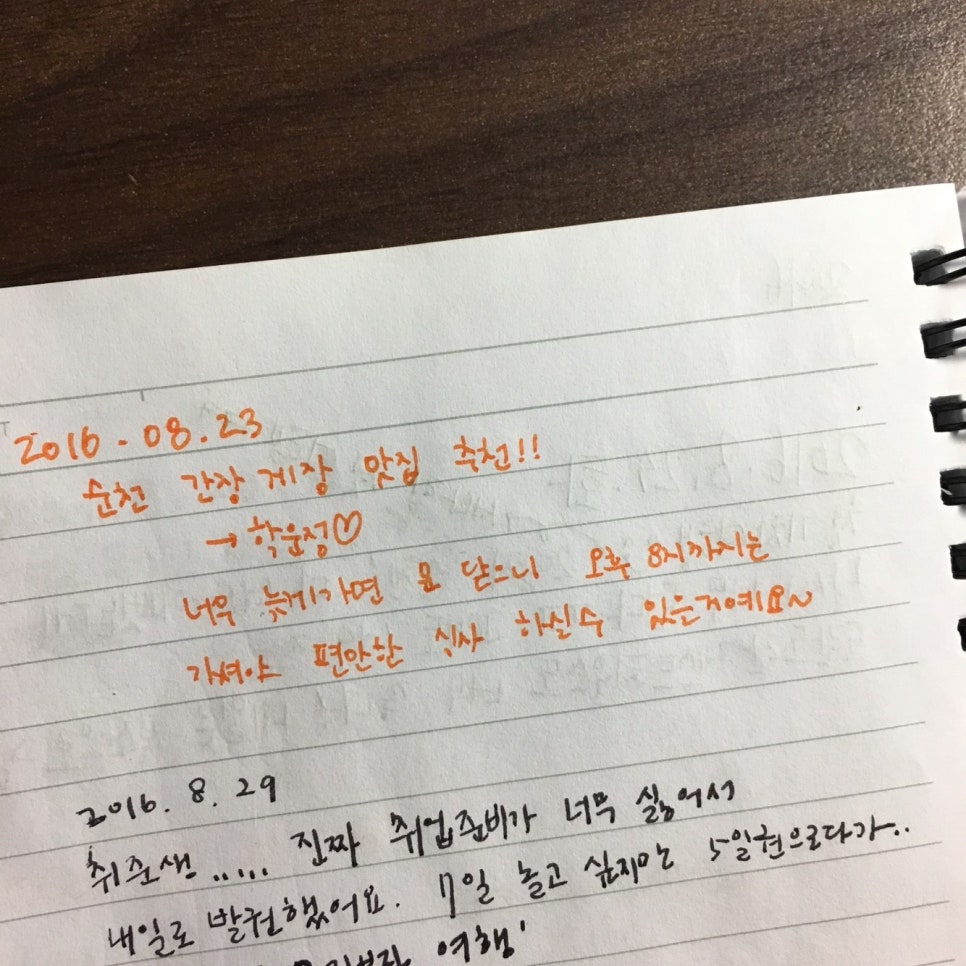 2016.08.23
순천 간장게장 맛집 추천!!
→ 학운정♡
너무 늦게가면 문 닫으니 오후 8시까지는
가셔야 편안한 식사 하실수 있을거예요~
2016. 8. 29
취준생 ..... 진짜 취업준비가 너무 싫어서
내일로 발권했어요. 7일 놀고 싶지만 5일권으로다가..
여행'